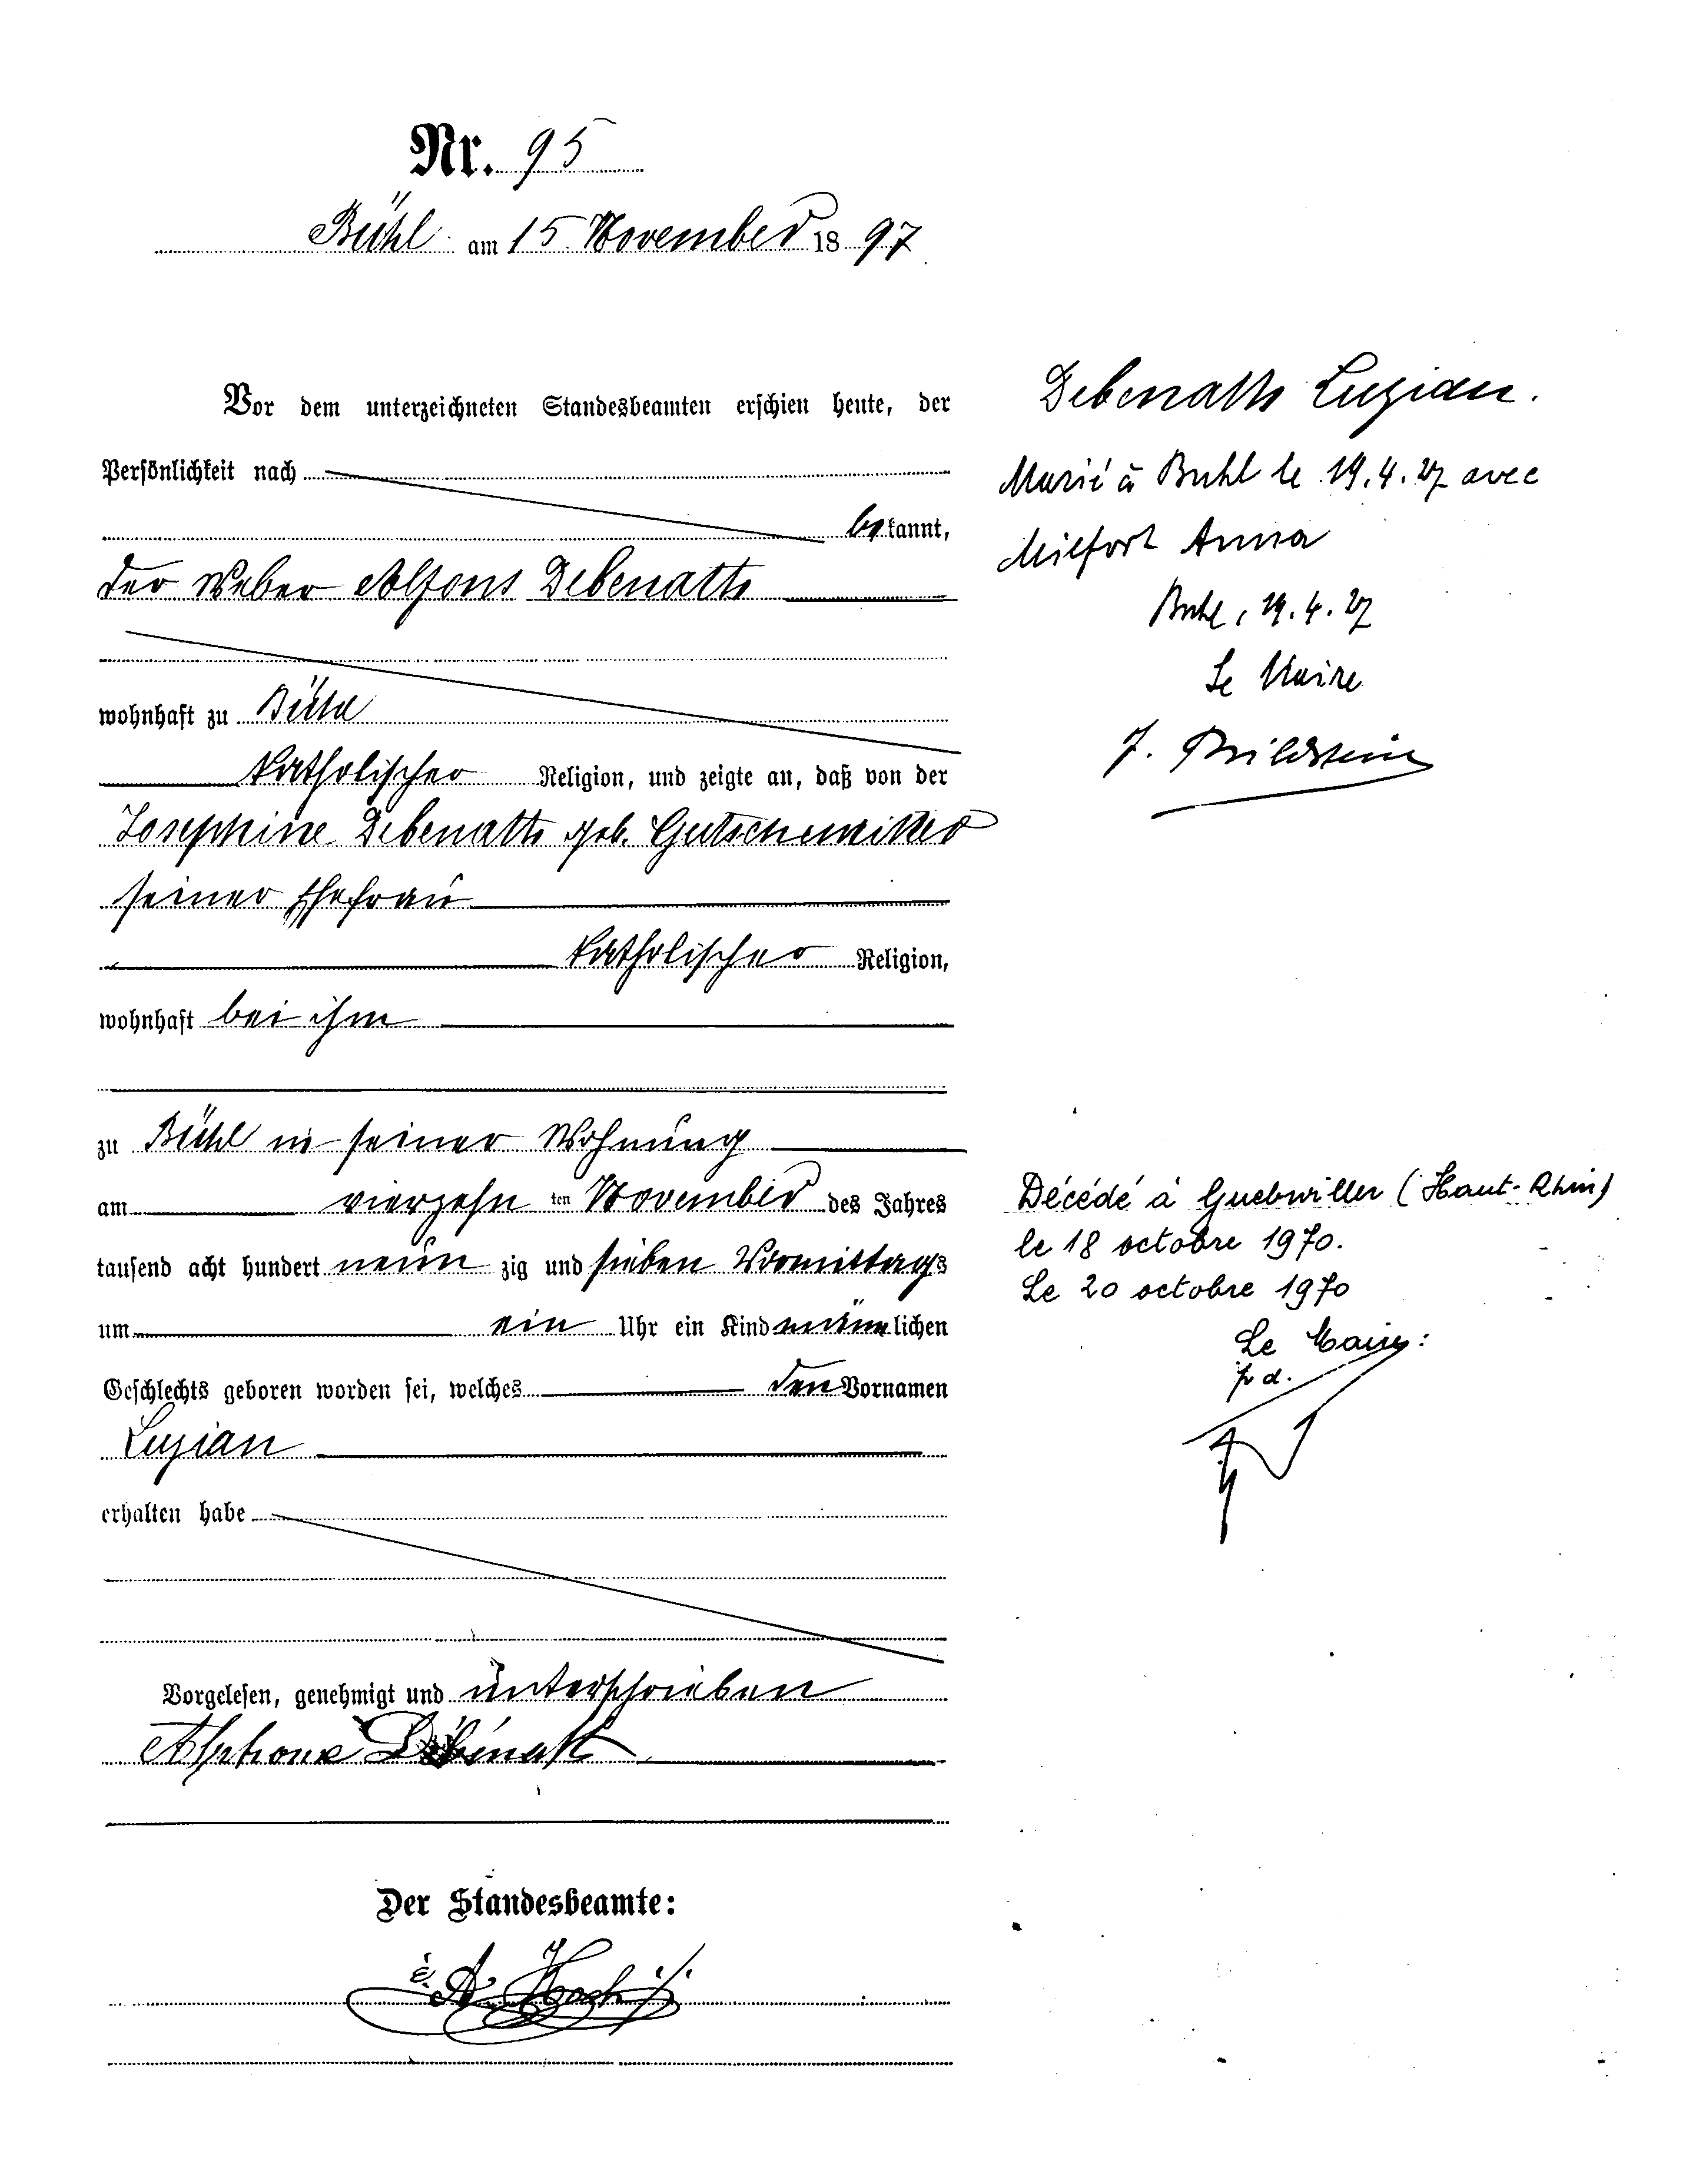 Nr. 95
Bühl am 15 November 1897
Vor dem unterzeichneten Standesbeamten erschien heute, der
Persönlichkeit nach
bekannt,
der Weber Alfons Debenath
wohnhaft zu Bühl
katholischer Religion, und zeigte an, daß von der
Josephine Debenath geb.
seiner Ehefrau
katholischer Religion,
wohnhaft bei ihm
zu Bühl in seiner Wohnung
am vierzehn ten November des Jahres
tausend acht hundert neun zig und sieben Vormittags
um ein Uhr ein Kind männlichen
Geschlechts geboren worden sei, welches den Vornamen
Luzian
erhalten habe
Vorgelesen, genehmigt und unterschrieben
Alphonse Debénath
Der Standesbeamte:
Debenath Luzian.
Marié à Buhl le 19.4.27 avec
Milfort Anna
Buhl, 19.4.27
Le Maire
J. Bildstein
Décédé à Guebwiller (Haut-Rhin)
le 18 octobre 1970.
Le 20 octobre 1970
Le Maire:
p d.